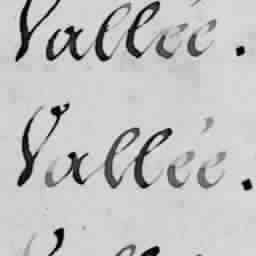 Vallée.
Vallée.